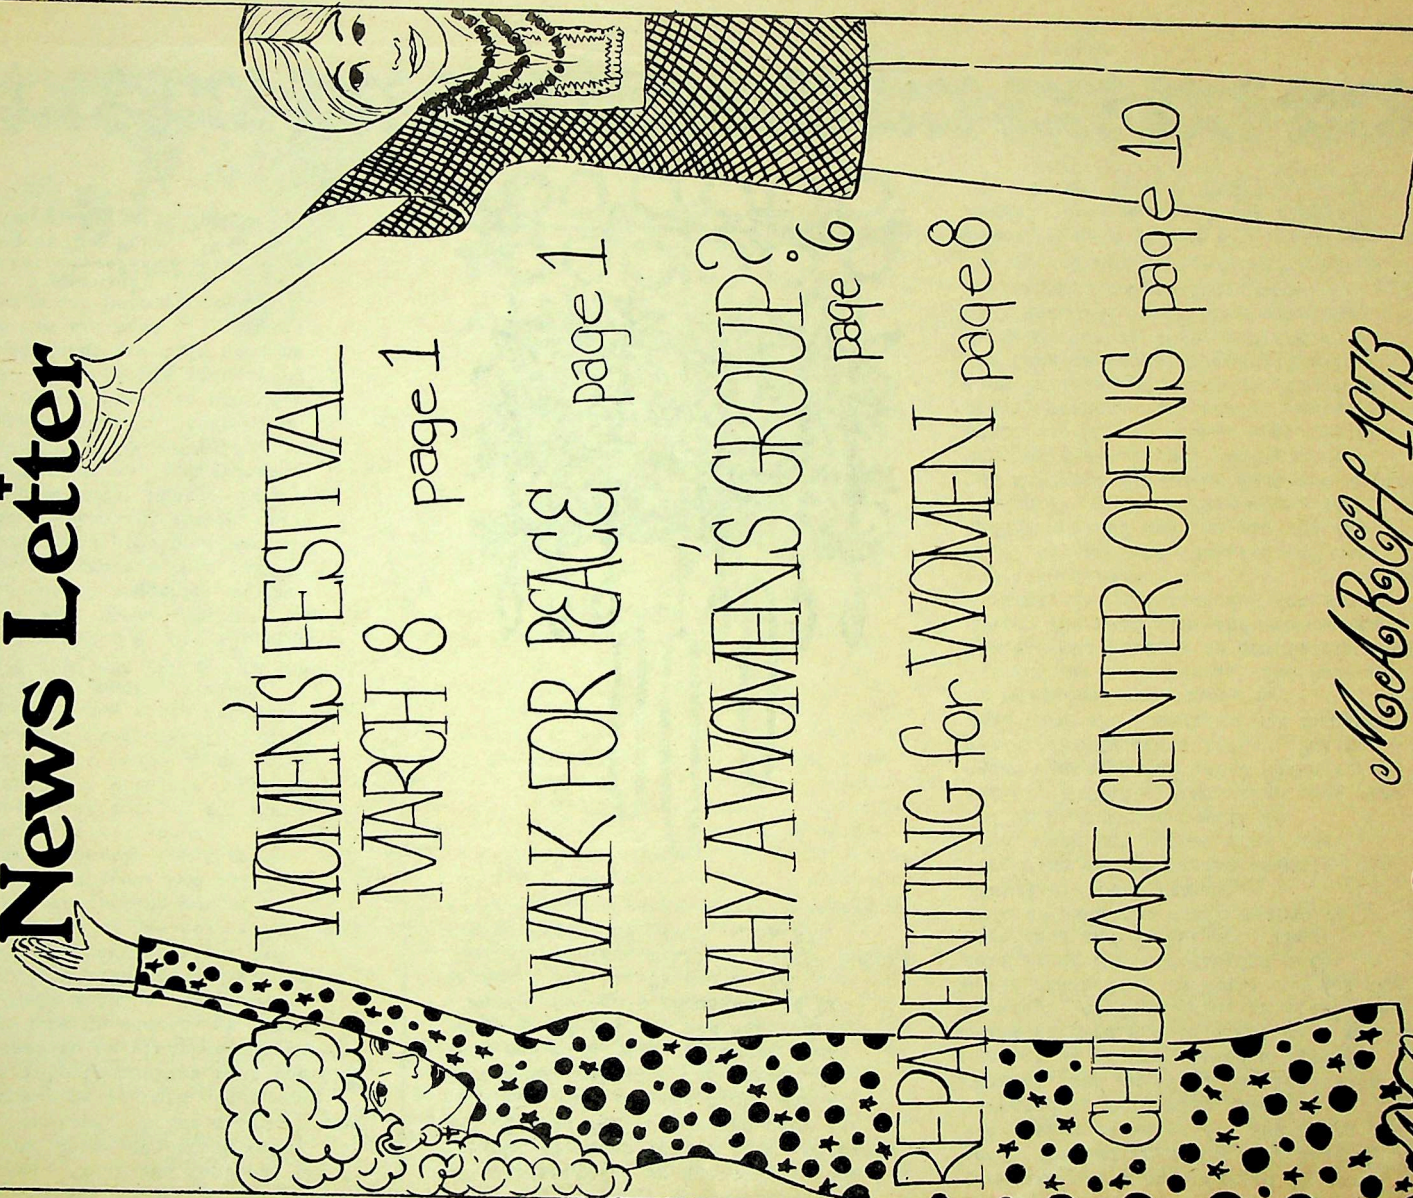 News Letter
WOMEN'S FESTIVAL
MARCH 8 page 1
WALK FOR PEACE page 1
WHY A WOMEN'S GROUP?
page 6
REPARENTING for WOMEN page 8
CHILD CARE CENTER OPENS page 10
MARCH 1973